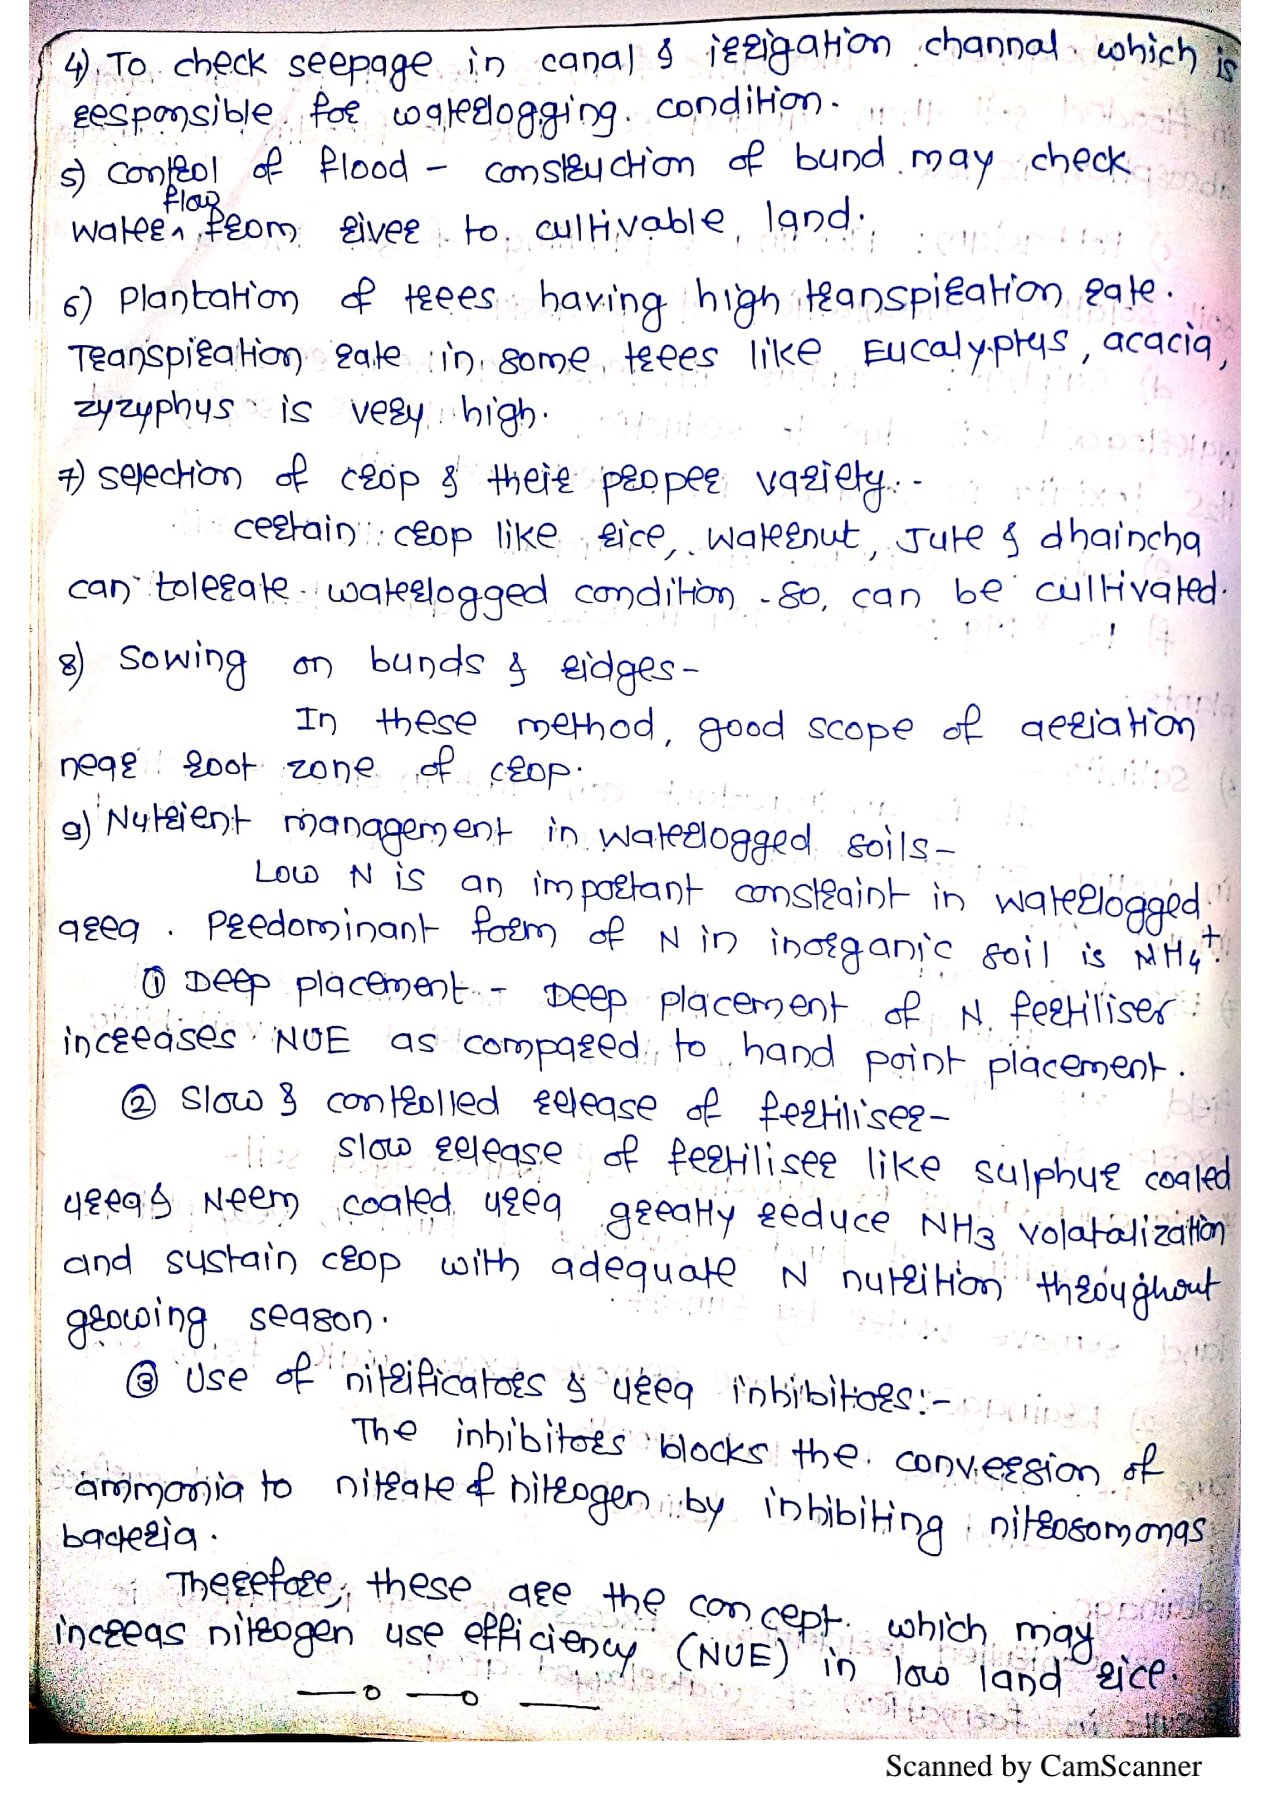 4) To check seepage in canal & irrigation channal which is
responsible for waterlogging condition.
5) Control of flood - construction of bund may check
flow
water ^ from river to cultivable land.
6) Plantation of trees having high transpiration rate.
Transpiration rate in some trees like Eucalyptus, acacia,
zyzyphus is very high.
7) Selection of crop & their proper variety..-
certain crop like rice, waternut, Jute & dhaincha
can tolerate waterlogged condition - so, can be cultivated.
8) Sowing on bunds & ridges-
In these method, good scope of aeriation
near root zone of crop.
9) Nutrient management in waterlogged soils-
Low N is an important constraint in waterlogged
area. Predominant form of N in inorganic soil is NH4+.
① Deep placement - Deep placement of N fertiliser
increases NUE as compared to hand point placement.
② Slow & controlled release of fertiliser-
Slow release of fertiliser like sulphur coated
urea & Neem coated urea greatly reduce NH3 volatalization
and sustain crop with adequate N nutrition throughout
growing season.
③ Use of nitrificators & urea inhibitors:-
The inhibitors blocks the conversion of
ammonia to nitrate of nitrogen by inhibiting nitrosomonas
bacteria.
Therefore, these are the concept which may
increas nitrogen use efficiency (NUE) in low land rice.
Scanned by CamScanner